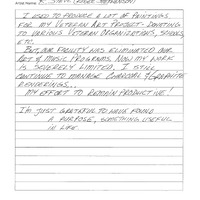 Artist Name: R. Smith (Roger Stephenson)
I used to produce a lot of paintings
for my Veteran Art Project - donating
to various Veteran Organizations, schools,
etc.
But, our facility was eliminated our
Art & Music Programs. Now my work
is severely limited. I still
continue to manage charcoal & graphite
renderings...
my effort to remain productive!
I'm just grateful to have found
a purpose, something useful
in life.